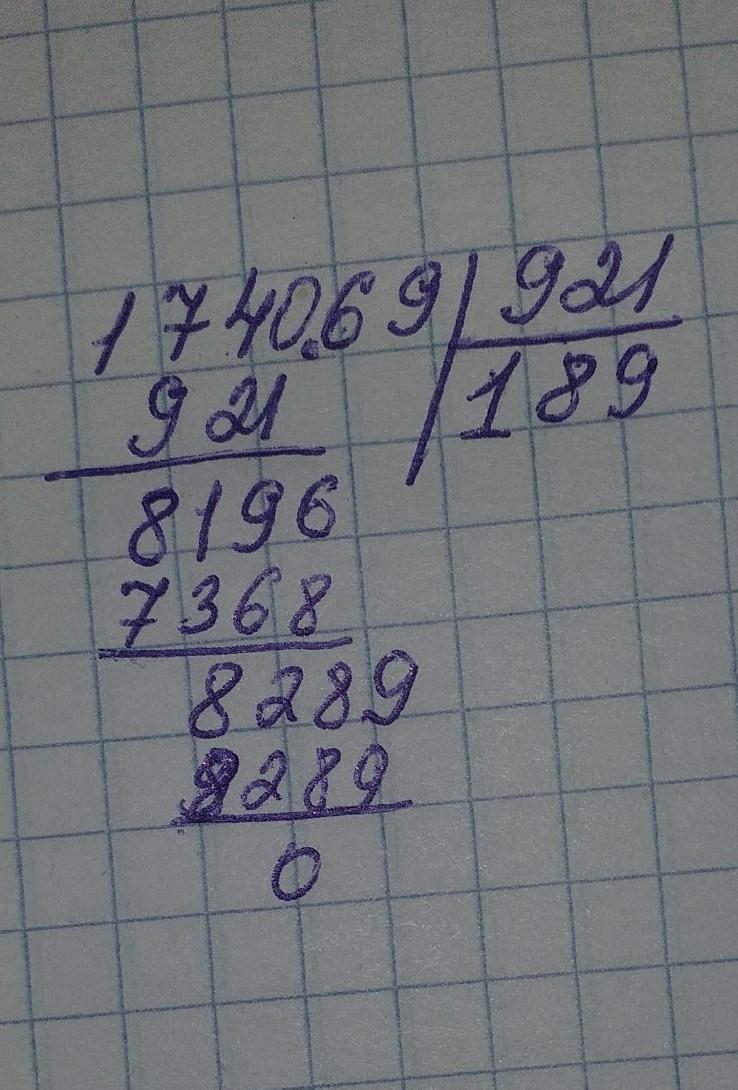 174069 921
921 189
8196
7368
8289
8289
0